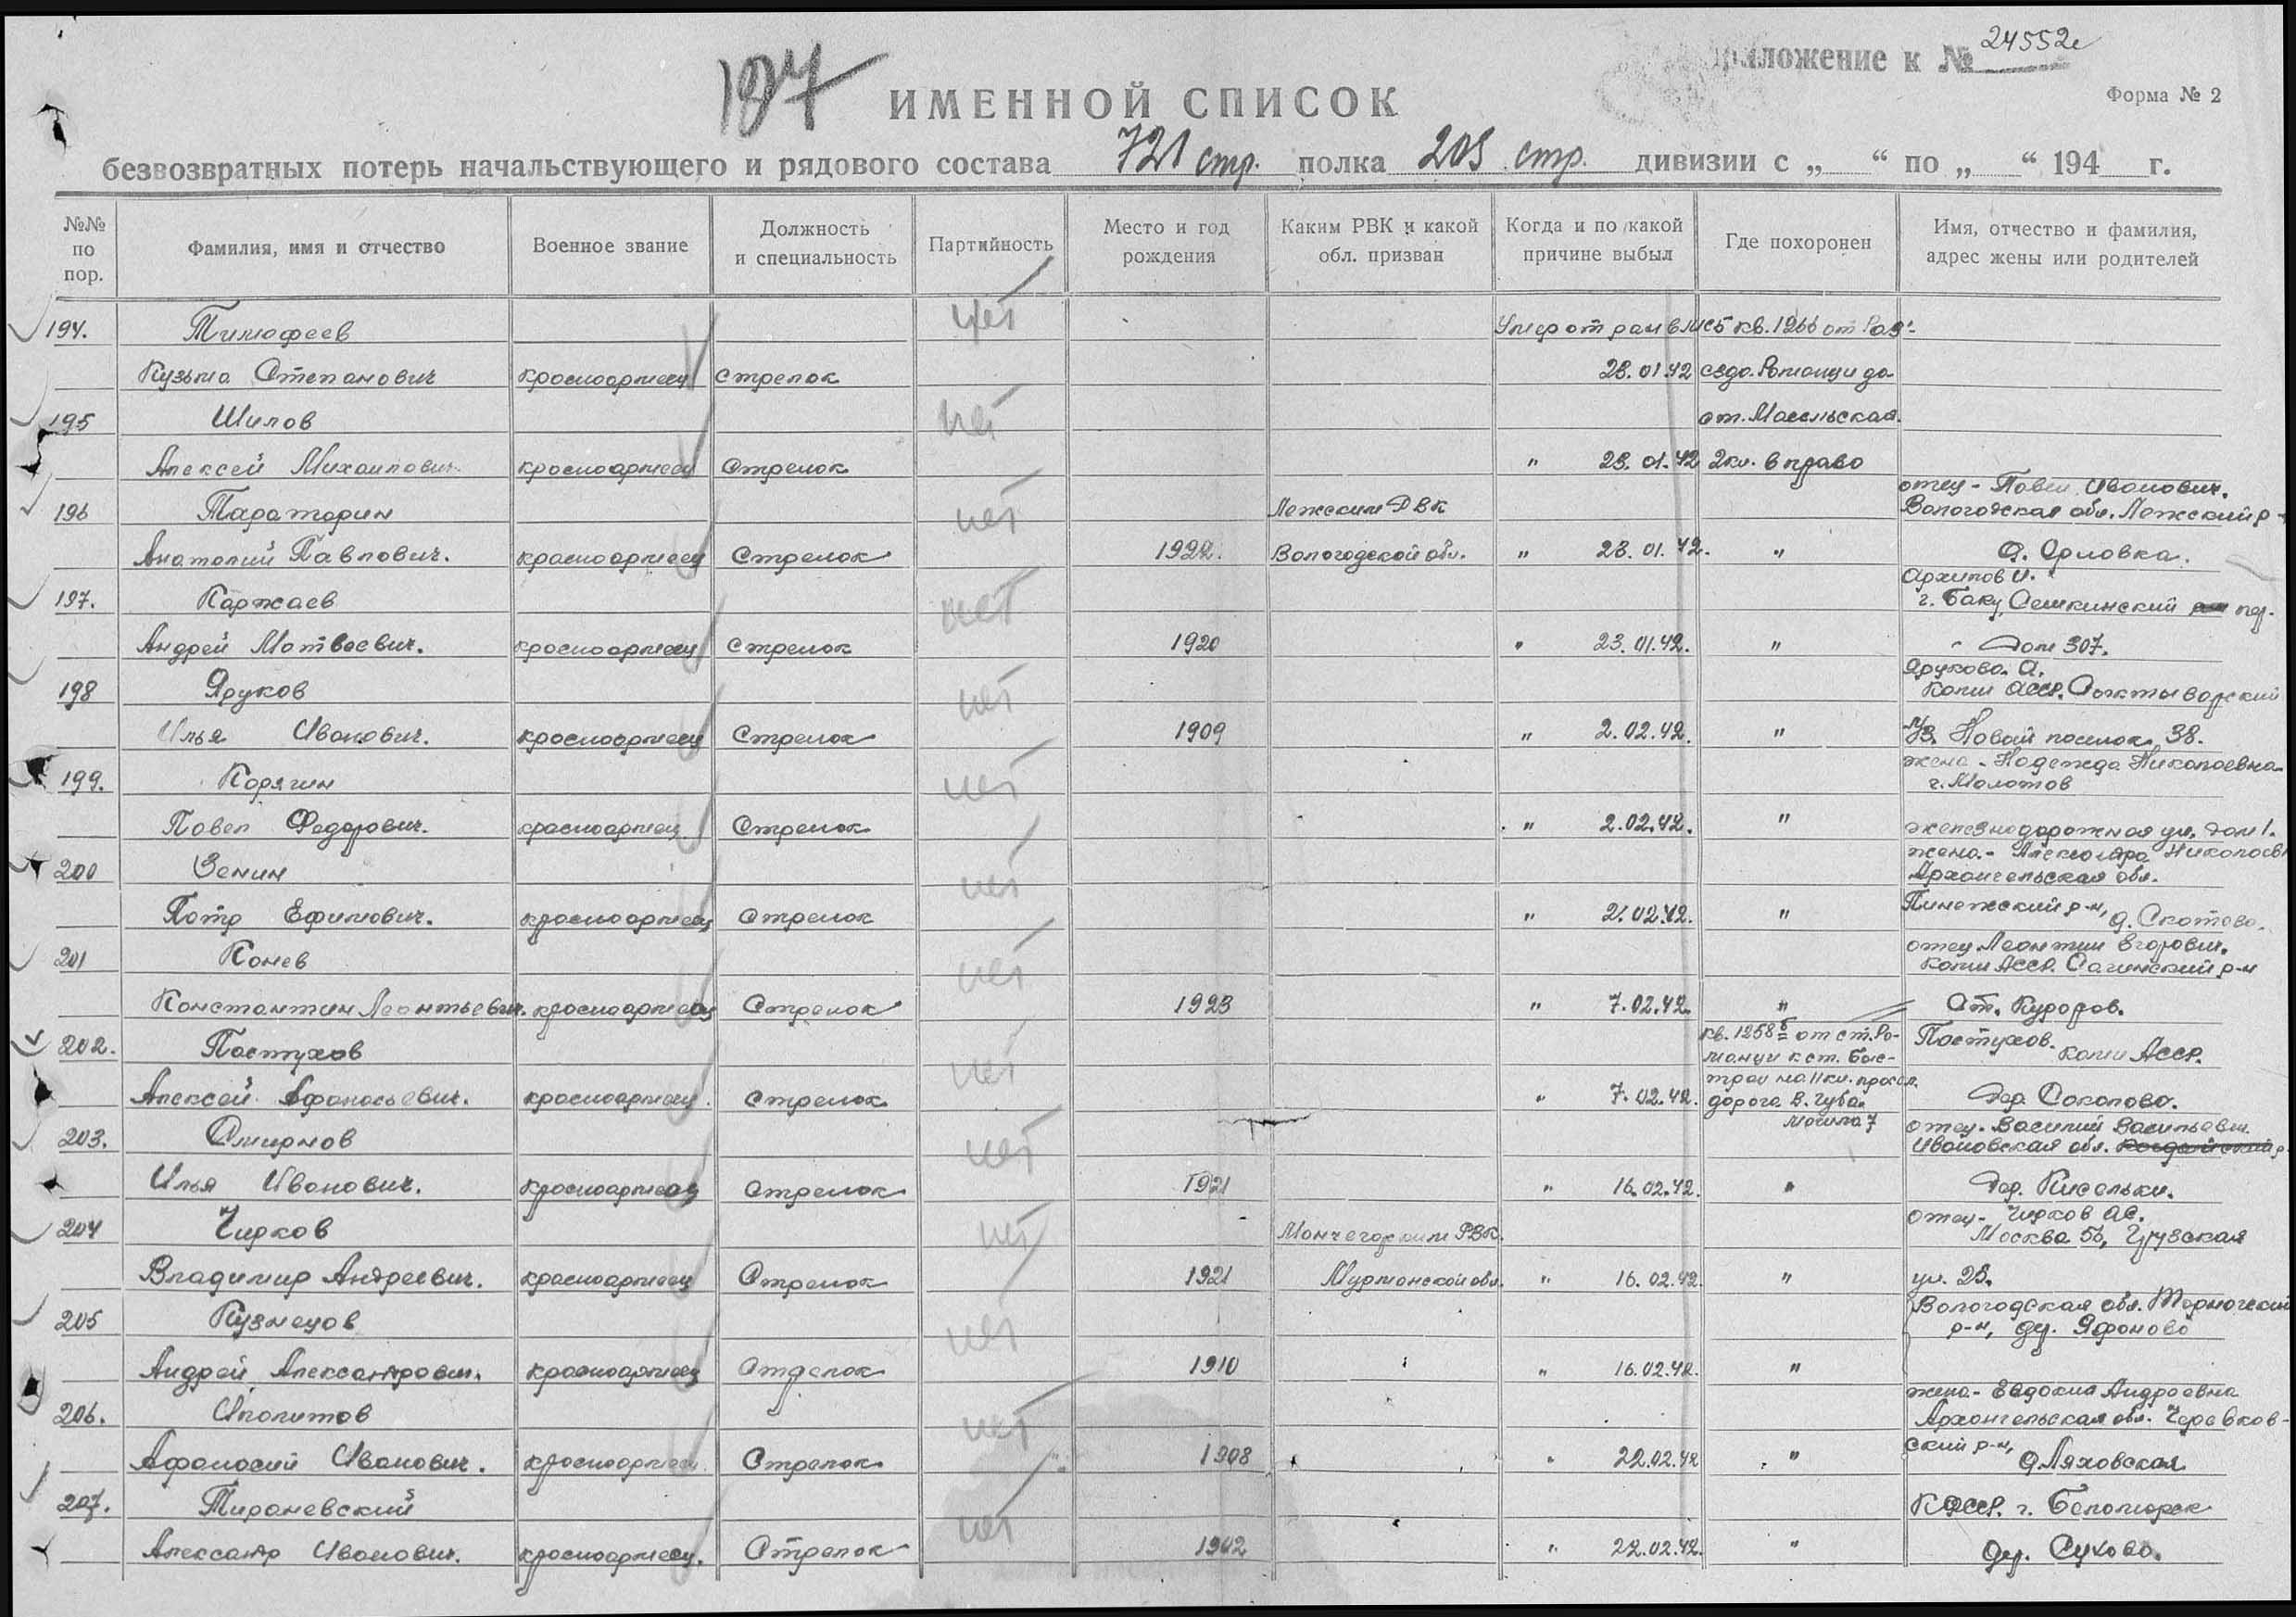 24552с
Приложение к №
187
ИМЕННОЙ СПИСОК
Форма № 2
безвозвратных потерь начальствующего и рядового состава 721 стр. полка 205 стр. дивизии с „ “ по „ “ 194 г.
№№ по пор.
Фамилия, имя и отчество
Военное звание
Должность и специальность
Партийность
Место и год рождения
Каким РВК и какой обл. призван
Когда и по какой причине выбыл
Где похоронен
Имя, отчество и фамилия, адрес жены или родителей
194. Тимофеев нет Умер от ран в МСБ кв. 1266 от Раз-
Кузьма Степанович красноармеец Стрелок 23.01.42 Ромонци до
195 Шилов нет ст. Масельская.
Алексей Михайлович красноармеец Стрелок " 23.01.42 2км. вправо
отец - Павел Иванович.
196 Тараторин нет Лежским РВК Вологодская обл. Лежский р-
Анатолий Павлович. красноармеец Стрелок 1922. Вологодской обл. " 23.01.42. " д. Орловка.
Архипов И.
197. Каржаев нет г. Баку, пер.
Андрей Матвеевич. красноармеец Стрелок 1920 " 23.01.42. " Дом 307.
Ярукова. А.
198 Яруков нет Коми АССР. Сыктывдорский
Илья Иванович. красноармеец Стрелок 1909 " 2.02.42. " Новый поселок, 38.
жена - Надежда Николаевна
199. Корягин нет г. Молотов
Павел Федорович. красноармеец Стрелок " 2.02.42. " железнодорожная ул, дом 1.
жена - Александра Николаев
200 Зенин нет Архангельская обл.
Петр Ефимович. красноармеец Стрелок " 2.02.42. " Пинежский р-н, д. Скотово.
отец Леонтий Егорович.
201 Конев нет Коми АССР. р-н
Константин Леонтьевич. красноармеец Стрелок 1923 " 7.02.42. "
202. Постухов нет кв. 1258 б от ст. Ро- Постухов. Коми АССР.
монци к ст. Быс-
трой на 11 км. просел.
Алексей Афанасьевич. красноармеец. Стрелок " 7.02.42. дорога В. Губа. дер. Соколово.
могила 7
203. Смирнов нет отец. Василий Васильевич.
Ивановская обл.
Илья Иванович. красноармеец Стрелок 1921 " 16.02.42. " дер. Кисельки.
отец - Чирков АС.
204 Чирков нет Мончегорским РВК. Москва 56, Грузская
Владимир Андреевич. красноармеец Стрелок 1921 Мурманской обл. " 16.02.42. " ул. 23.
205 Кузнецов нет Вологодская обл. Тарногский
р-н, дер. Яфоново
Андрей Александрович. красноармеец Стрелок 1910 " 16.02.42. "
жена - Евдокия Андреевна
206. Иполитов нет Архангельская обл. Черевков-
Афанасий Иванович. красноармеец. Стрелок 1908 " 22.02.42 " ский р-н, д Ляховская
207. Тироневский нет КФССР. г. Беломорск
Александр Иванович. красноармеец. Стрелок 1902 " 22.02.42. " дер. Сухово.